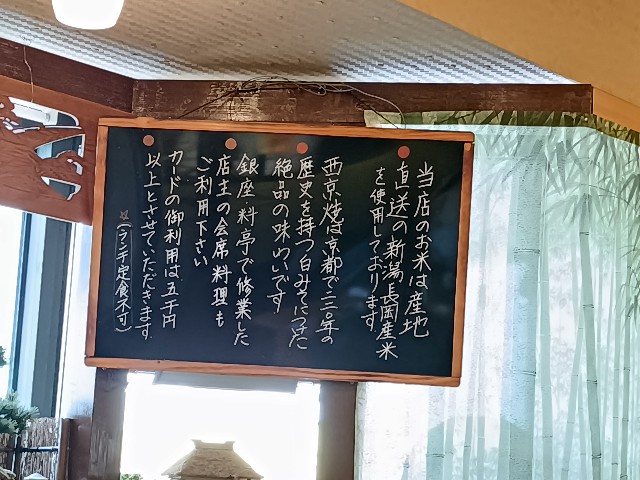 当店のお米は産地
直送の新潟長岡産米
を使用しております
西京焼は京都で二三〇年の
歴史を持つ白みそにつけた
絶品の味わいです
銀座・料亭で修業した
店主の会席料理も
ご利用下さい
カードの御利用は五千円
以上とさせていただきます
(ランチ定食不可)